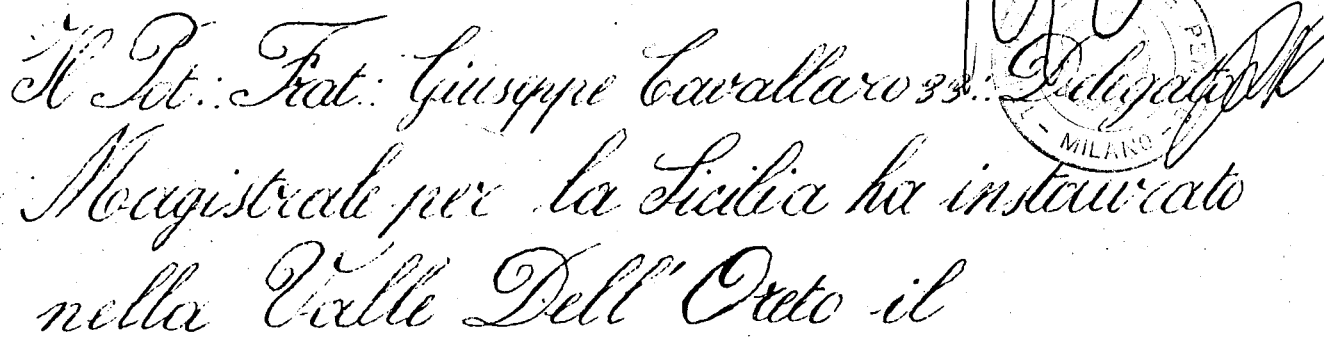 Il Pot∴ Frat∴ Giuseppe Cavallaro 33∴ Delegato
Magistrale per la Sicilia ha instaurato
nella Valle Dell' Oreto il
MILANO